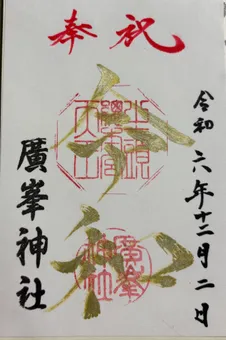 奉祝
令和六年十二月二日
令和
廣峯
神社
廣峯神社